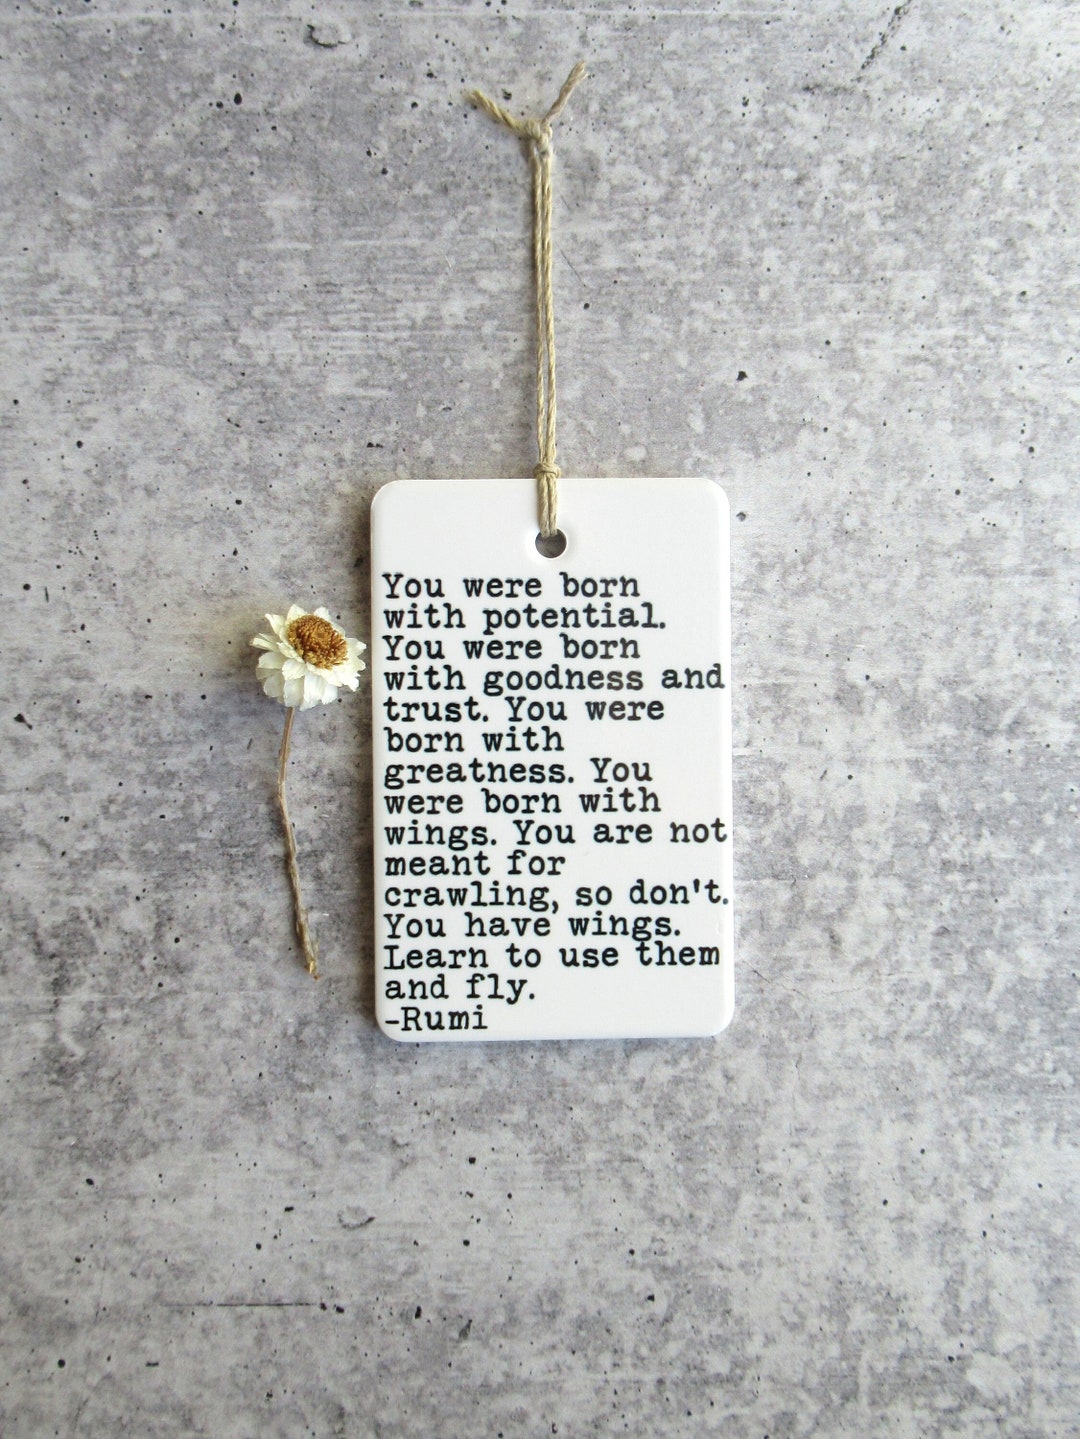 You were born
with potential.
You were born
with goodness and
trust. You were
born with
greatness. You
were born with
wings. You are not
meant for
crawling, so don't.
You have wings.
Learn to use them
and fly.
-Rumi